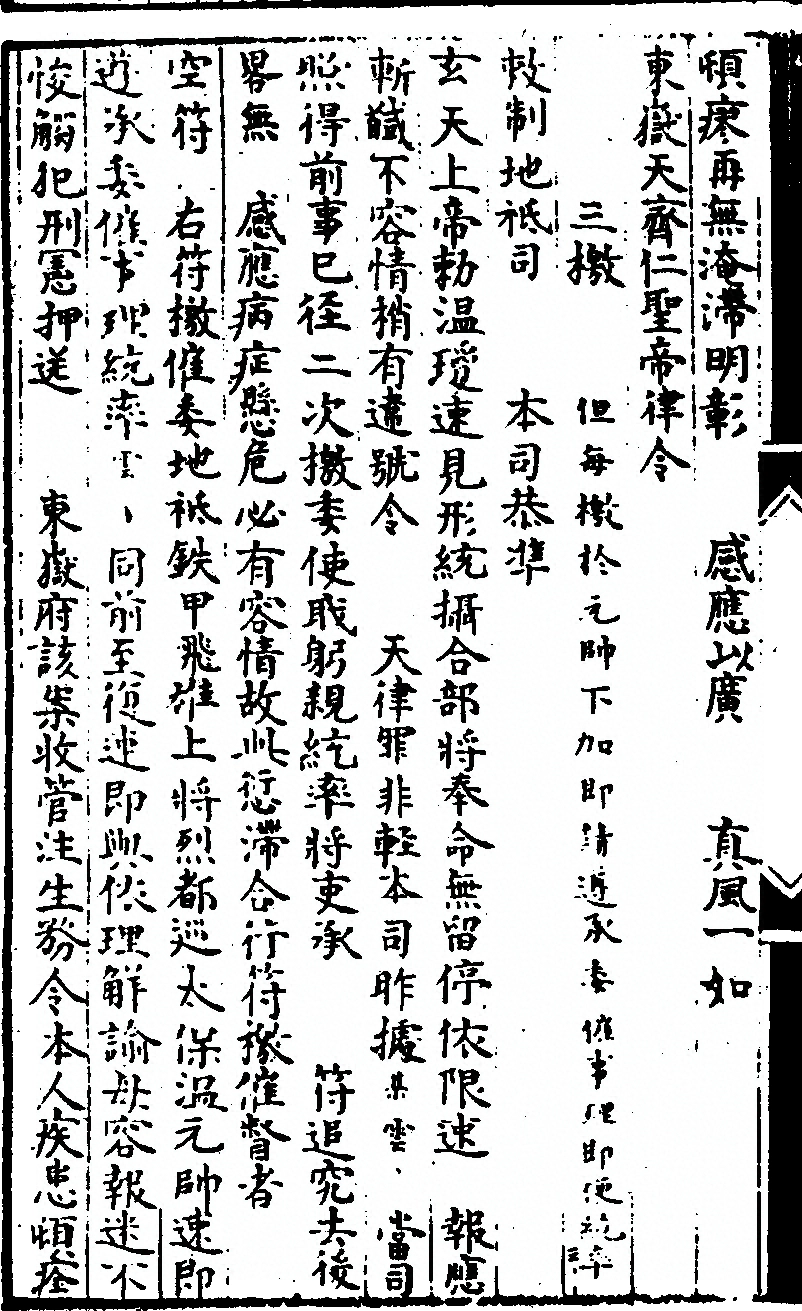 頓瘳再無淹滯明彰　感應以廣　真風一如
東嶽天齊仁聖帝律令
三檄　但每檄於元帥下加即請遵承委催事理即便統率
敕制地祇司　本司恭準
玄天上帝勑溫瓊速見形統攝合部將奉命無留停依限速　報應
斬馘不容情稍有違號令　天律罪非輕本司昨據某雲丶　當司
照得前事已徑二次檄委使職躬親統率將吏承　符追究去後
畧無　感應病症懸危必有容情故此愆滯合行符檄催督者
空符　右符檄催委地祇鉄甲飛雄上將烈都巡太保温元帥速即
遵承委催事理統率雲丶同前至復速即與依理解諭毋容報迷不
悛觸犯刑憲押送　東嶽府該案收管注生勞令本人疾患頓痊